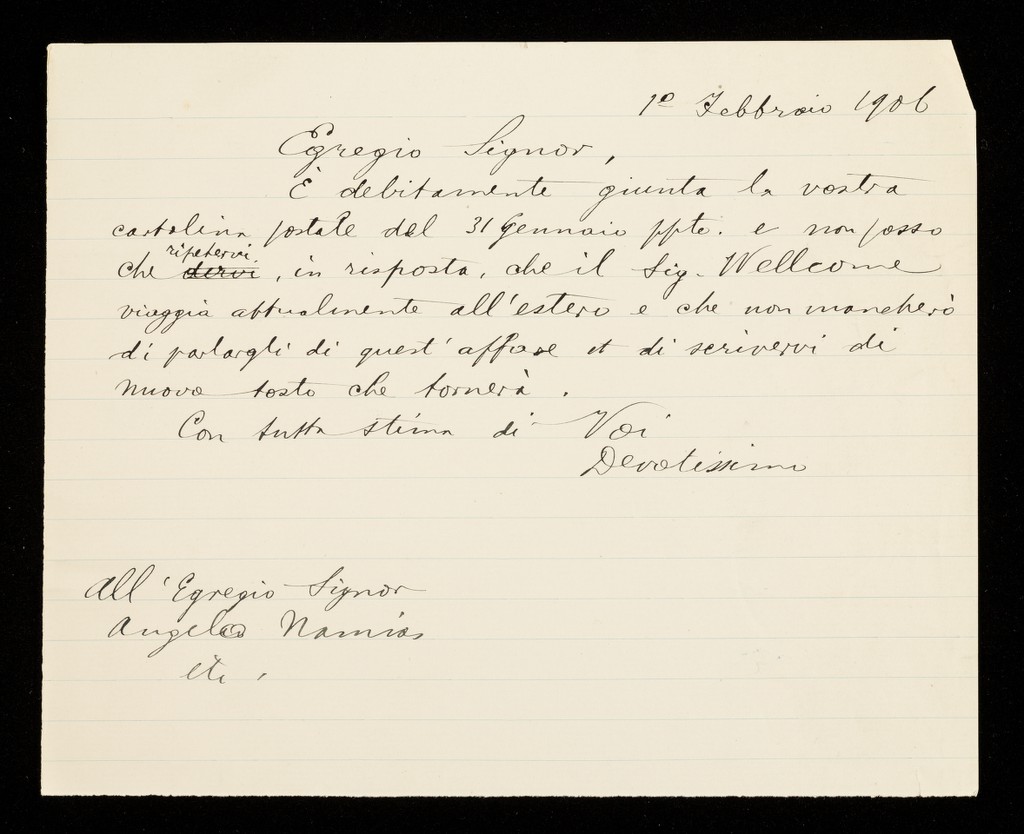 1º Febbraio 1906
Egregio Signor,
È debitamente giunta la vostra
cartolina postale del 31 Gennaio ppto. e non posso
ripetervi
che dirvi, in risposta, che il Sig. Wellcome
viaggia attualmente all'estero e che non mancherò
di parlargli di quest'affare et di scrivervi di
nuovo tosto che tornerà.
Con tutta stima di Voi
Devotissimo
All'Egregio Signor
Angelo Namias
etc.